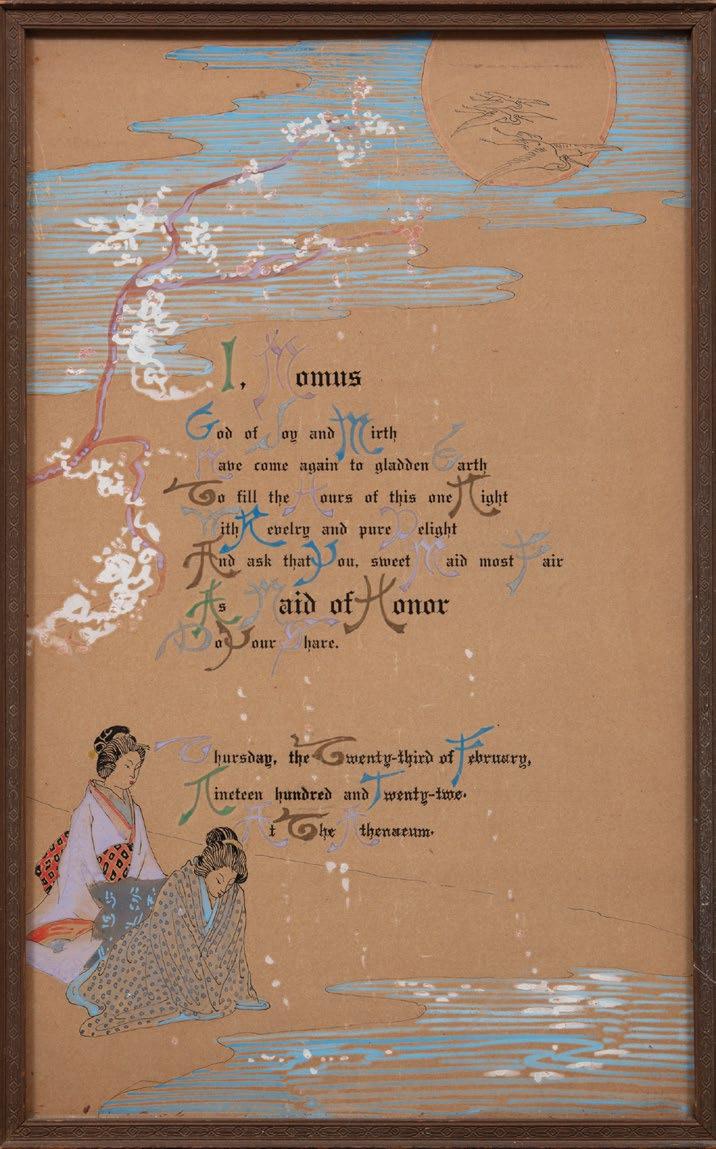 I, Momus
God of Joy and Mirth
Have come again to gladden Earth
To fill the Hours of this one Night
With Revelry and pure Delight
And ask that You, sweet Maid most Fair
As Maid of Honor
Do Your Share.
Thursday, the Twenty-third of February,
Nineteen hundred and Twenty-two.
At The Athenaeum.